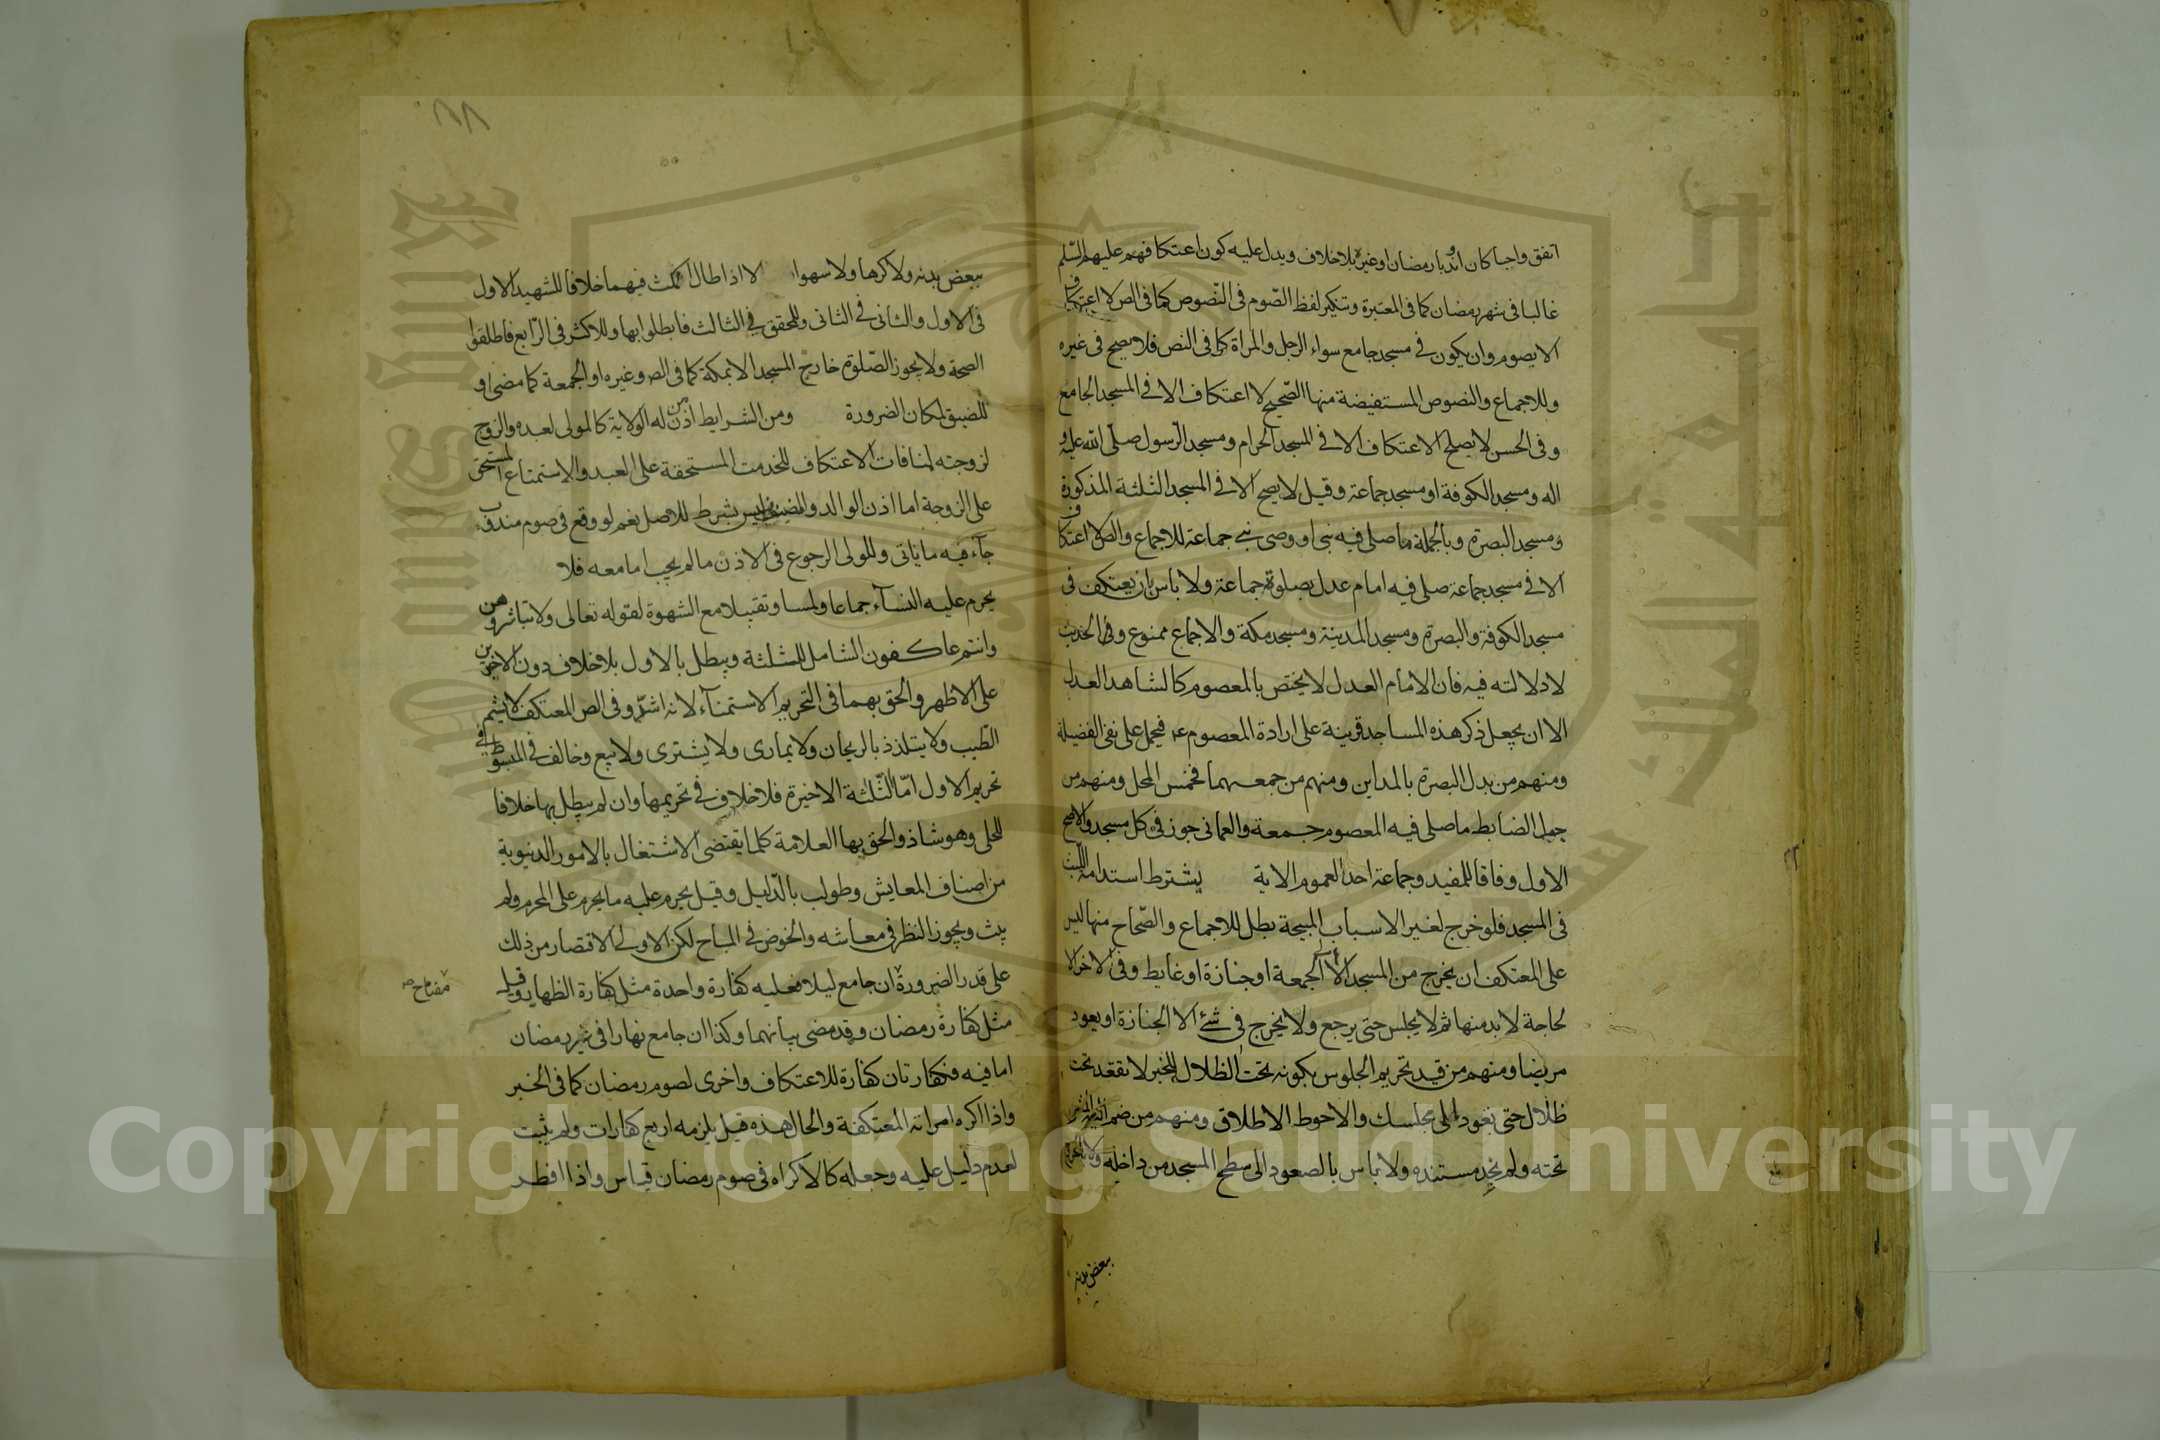 اتفق واجبا كان او ندبا رمضان او غيره بلا خلاف ويدل عليه كون اعتكافهم عليهم السّلم
غالبا فى شهر رمضان كما فى المعتبرة وتنكير لفظ الصّوم فى النّصوص كما فى الص لا اعتكاف
الا بصوم وان يكون فى مسجد جامع سواء الرجل والمراة كما فى النص فلا يصح فى غيره
وللاجماع والنصوص المستفيضة منها الصّحيح لا اعتكاف الا فى المسجد الجامع
وفى الحسن لا يصلح الاعتكاف الا فى المسجد الحرام ومسجد الرّسول صلّى الله عليه و
اله ومسجد الكوفة او مسجد جماعة وقيل لا يصح الا فى المسجد الثلثة المذكورة
ومسجد البصرة وبالجملة ما صلى فيه نبى او وصى نبى جماعة للاجماع والص لا اعتكاف
الا فى مسجد جماعة صلى فيه امام عدل بصلوة جماعة ولا باس بان يعتكف فى
مسجد الكوفة والبصرة ومسجد المدينة ومسجد مكة والاجماع ممنوع وفى الحديث
لا دلالته فيه فان الامام العدل لا يختص بالمعصوم كالشاهد العدل
الا ان يجعل ذكر هذه المساجد قرينة على ارادة المعصوم ع فيحمل على نفى الفضيلة
ومنهم من بدل البصرة بالمداين ومنهم من جمعهما فخمس المحل ومنهم من
جعل الضابط ما صلى فيه المعصوم جمعة والعمانى جوز فى كل مسجد والاصح
الاول وفاقا للمفيد وجماعة اخذا لعموم الاية يشترط استدامة اللبث
فى المسجد فلو خرج لغير الاسباب المبيحة بطل للاجماع والصّحاح منها ليس
على المعتكف ان يخرج من المسجد الا الى الجمعة او جنازة او غايط وفى الاخر الا
لحاجة لا بد منها ثم لا يجلس حتى يرجع ولا يخرج فى شئ الا الجنازة او يعود
مريضا ومنهم من قيد تحريم الجلوس بكونه تحت الظلال للخبر لا تقعد تحت
ظلال حتى تعود الى مجلسك والاحوط الاطلاق ومنهم من ضم اليه المشى
تحته ولم نجد مستنده ولا باس بالصعود الى سطح المسجد من داخله ولا بالخروج
ببعض بدنه
ببعض بدنه ولا كرها ولا سهوا الا اذا طال المكث فيهما خلافا للشهيد الاول
فى الاول والثانى فى الثانى وللمحقق فى الثالث فابطلوا بها وللاكثر فى الرّابع فاطلقوا
الصحة ولا يجوز الصّلوة خارج المسجد الا بمكة كما فى الص وغيره او الجمعة كما مضى او
للضيق لمكان الضرورة ومن الشرايط اذن من له الولاية كالمولى لعبده والزوج
لزوجته لمنافات الاعتكاف للخدمت المستحقة على العبد والاستمتاع المستحق
على الزوجة اما اذن الوالد والمضيف فليس بشرط للاصل نعم لو وقع فى صوم مندوب
جآء فيه ما ياتى وللولى الرجوع فى الاذن ما لم يجب اما معه فلا
يحرم عليه النسآء جماعا ولمسا وتقبيلا مع الشهوة لقوله تعالى ولا تباشروهن
وانتم عاكفون الشامل للثلثة ويبطل بالاول بلا خلاف دون الاخيرين
على الاظهر والحق بهما فى التحريم الاستمنآء لانه اشدّ وفى الص المعتكف لا يشم
الطّيب ولا يتلذذ بالريحان ولا يمارى ولا يشترى ولا يبيع وخالف فى المبسوط فى
تحريم الاول امّا الثّلثة الاخيرة فلا خلاف فى تحريمها وان لم يبطل بها خلافا
للحلى وهو شاذ والحق بها العلامة كلما يقتضى الاشتغال بالامور الدنيوية
من اصناف المعايش وطولب بالدّليل وقيل يحرم عليه ما يحرم على المحرم ولم
يثبت ويجوز النظر فى معاشه والخوض فى المباح لكن الاولى الاقتصار من ذلك
على قدر الضرورة ان جامع ليلا فعليه كفارة واحدة مثل كفارة الظهار وقيل
مفتاح
مثل كفارة رمضان وقد مضى بيانهما وكذا ان جامع نهارا فى غير رمضان
اما فيه فكفارتان كفارة للاعتكاف واخرى لصوم رمضان كما فى الخبر
واذا اكره امراته المعتكفة والحال هذه قيل يلزمه اربع كفارات ولم يثبت
لعدم دليل عليه وجعله كالاكراه فى صوم رمضان قياس واذا افطر
Copyright © King Saud University